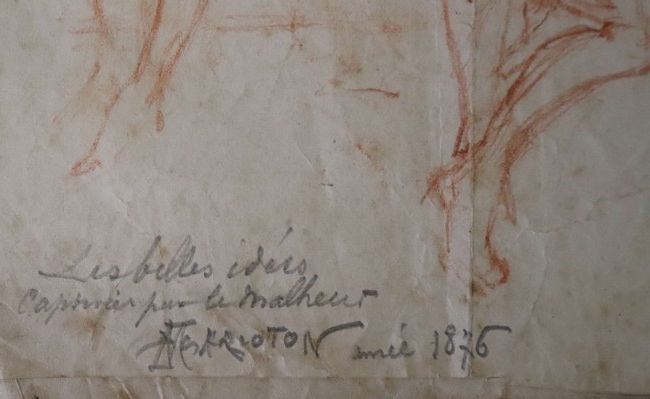 Les belles idées
par le malheur
année 1876